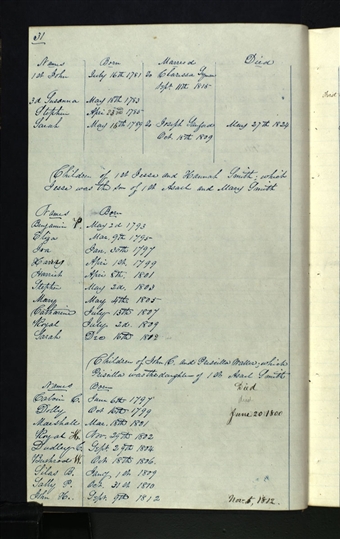 31
Names Born Married Died
1st John July 16th 1781 to Clarissa
Sept 11th 1815
3d Susanna May 18th 1783
Stephen Apr 1785
Sarah May 15th 1789 to Joseph May 27th 1824
Oct 18th 1809
Children of 1st Jesse and Hannah Smith; which
Jesse was the son of 1st Asael and Mary Smith
Names Born
Benjamin P. May 2d 1793
Eliza Mar. 9th 1795
Ira Jan. 30th 1797
Harvy Apr 1st 1799
Harriet Apr 8th 1801
Stephen May 2d 1803
Mary May 4th 1805
Catharine July 13th 1807
Royal July 2d 1809
Sarah Dec 16th
Children of John C. and Priscilla Waller, which
Priscilla was the daughter of 1st Asael Smith
Names Born Died
Calvin C. June 6th 1797
Dolly Oct 16th 1799 June 20 1800
Marshall Mar. 18th 1801
Royal H. Nov. 29th 1802
Dudley C. Sept. 29th 1804
Bushrod W. Oct. 18th 1806
Silas B. Jany. 1st 1809
Sally P. Oct. 31st 1810
John H. Sept. 9th 1812 Nov. 5, 1812.